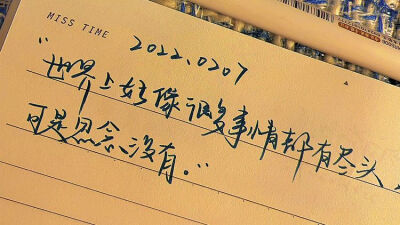 MISS TIME
2022.0207
“世界上好像很多事情都有尽头,
可是思念没有。”